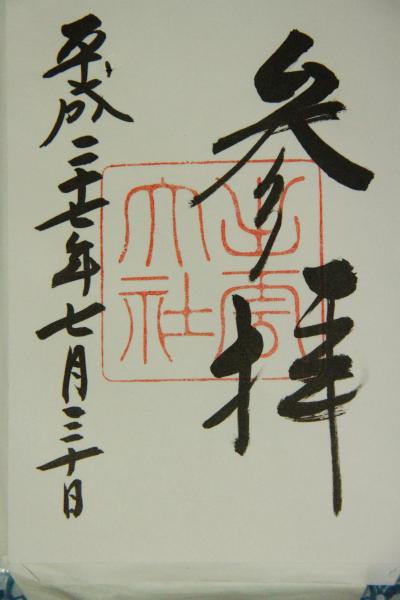 参拝
出雲
大社
平成二十七年七月三十日